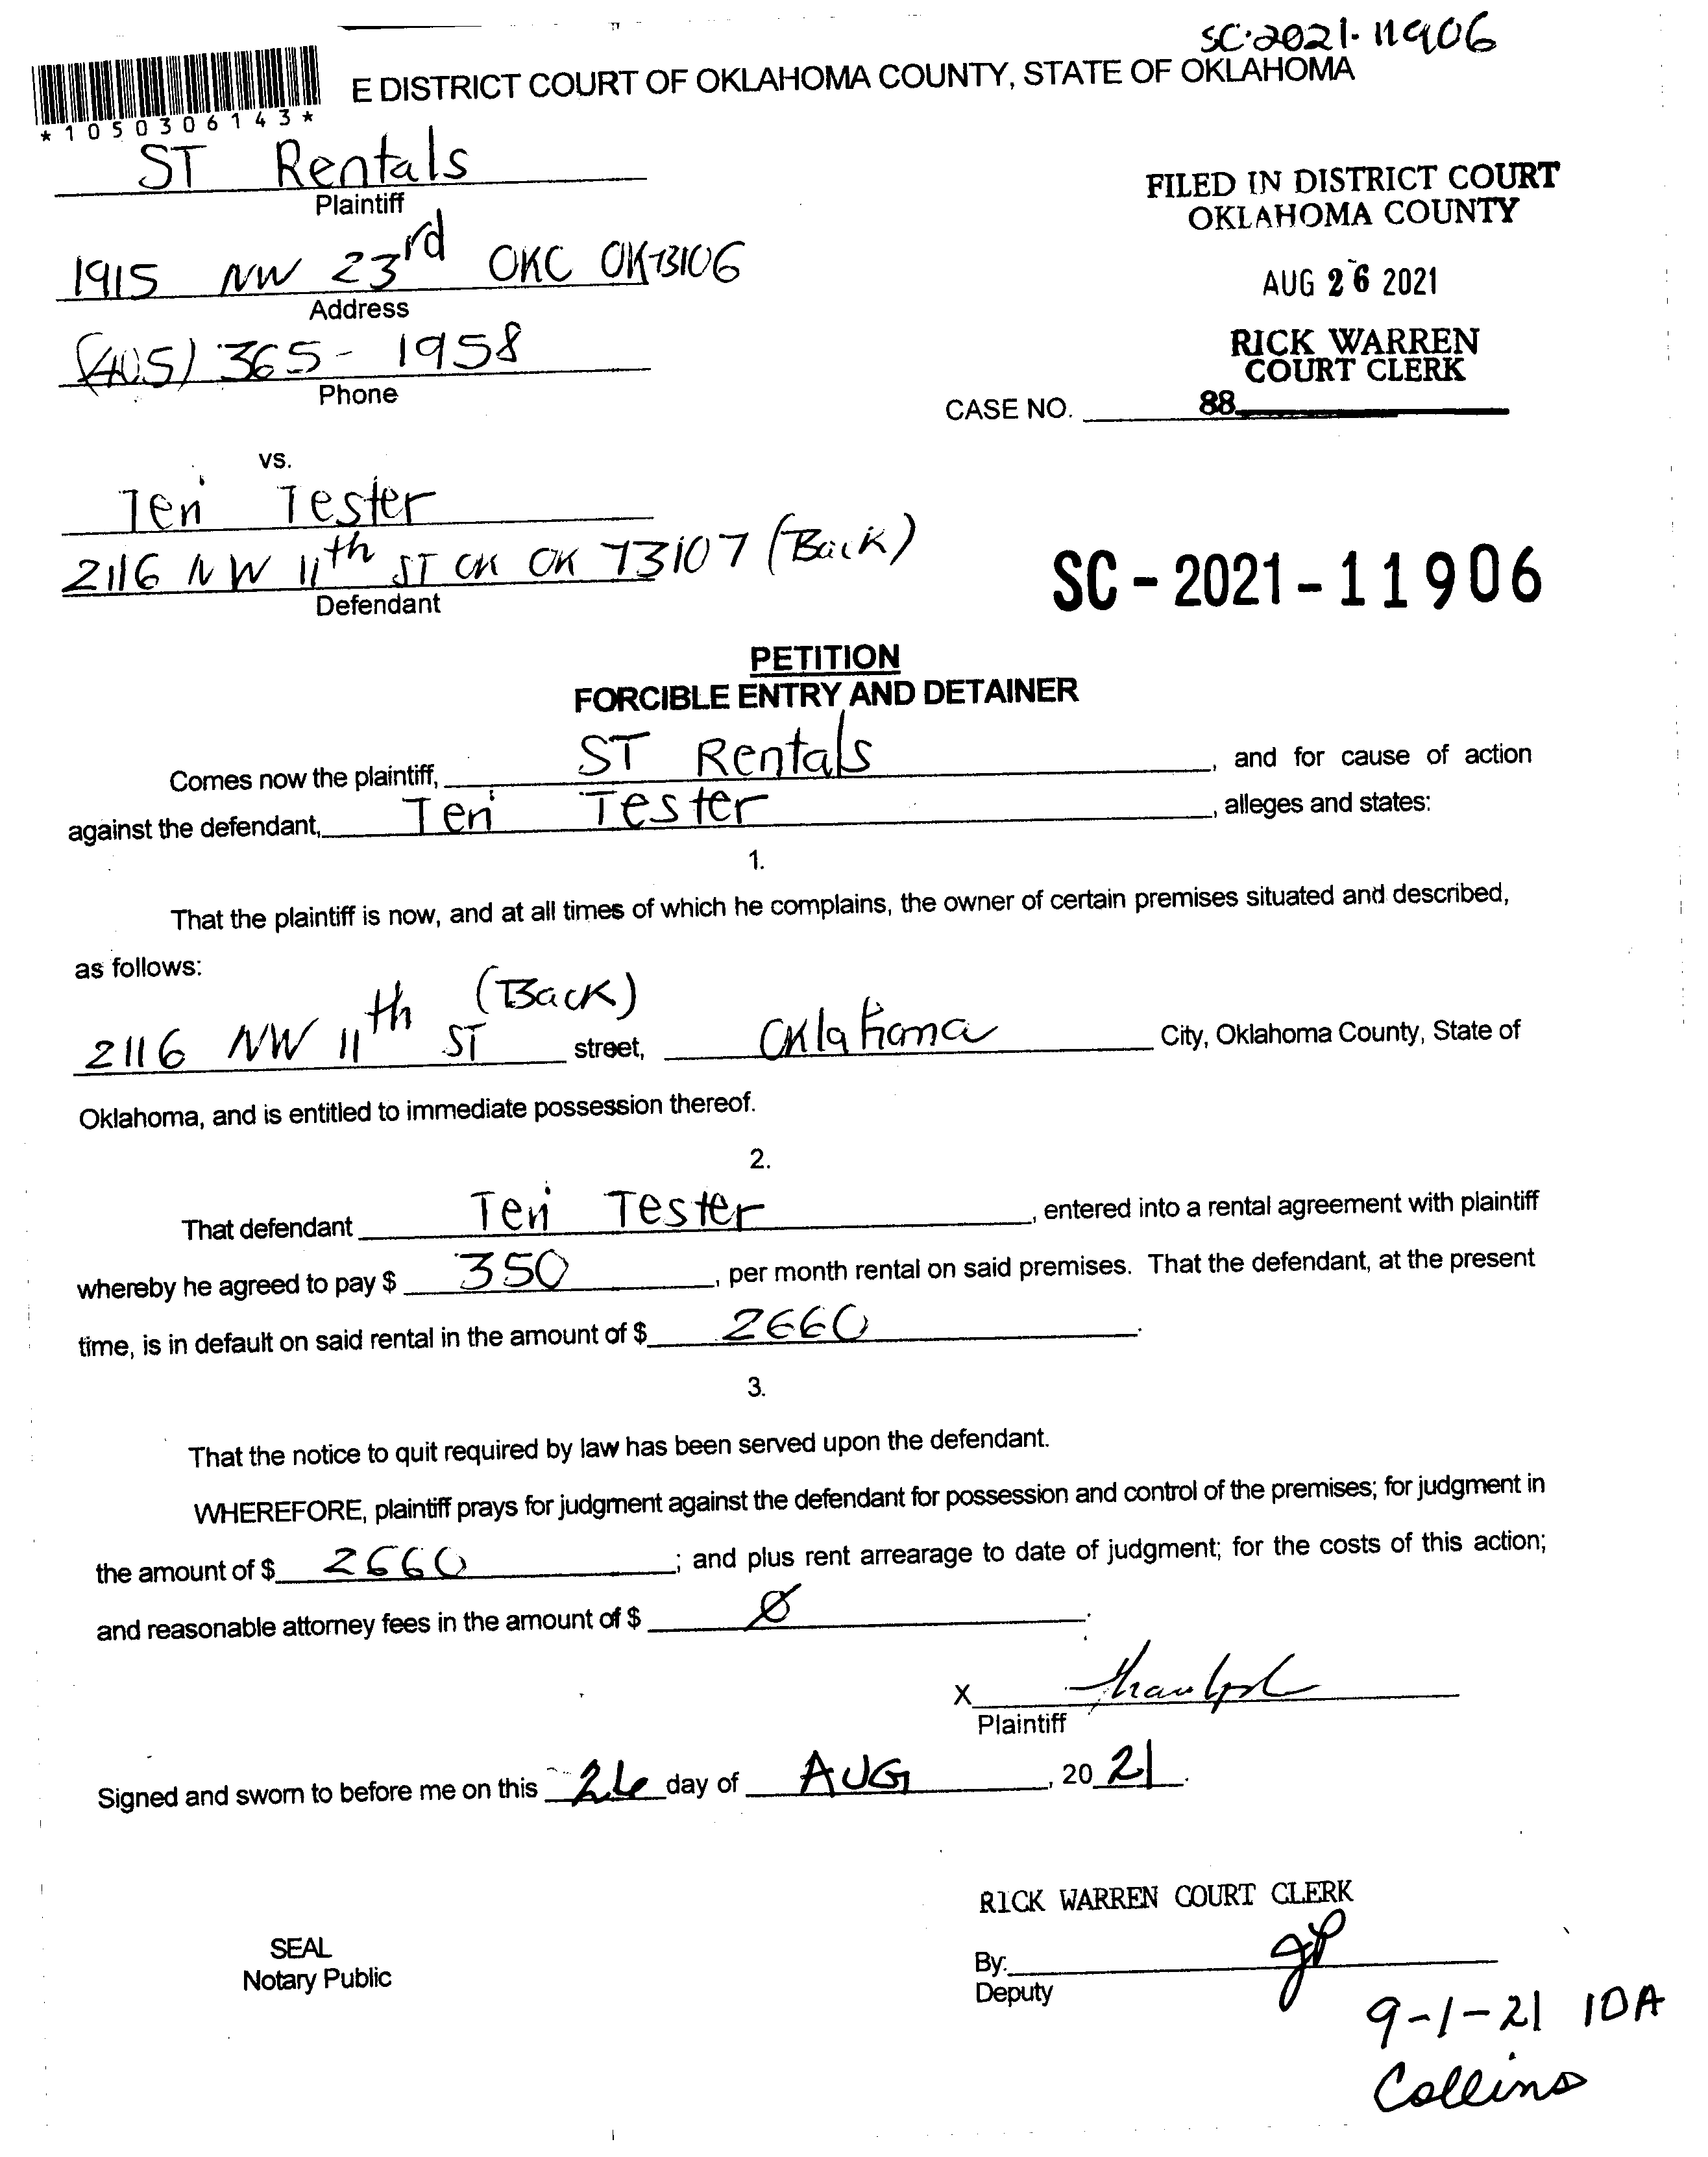 SC-2021-11906
E DISTRICT COURT OF OKLAHOMA COUNTY, STATE OF OKLAHOMA
*1050306143*
ST Rentals
Plaintiff
FILED IN DISTRICT COURT
OKLAHOMA COUNTY
1915 NW 23rd OKC OK 73106
Address
AUG 26 2021
(405) 365-1958
Phone
RICK WARREN
COURT CLERK
CASE NO. 88
vs.
Teri Tester
2116 NW 11th ST OK OK 73107 (Back)
Defendant
SC-2021-11906
PETITION
FORCIBLE ENTRY AND DETAINER
Comes now the plaintiff, ST Rentals, and for cause of action
against the defendant, Teri Tester, alleges and states:
1.
That the plaintiff is now, and at all times of which he complains, the owner of certain premises situated and described,
as follows:
2116 NW 11th ST (Back) street, Oklahoma City, Oklahoma County, State of
Oklahoma, and is entitled to immediate possession thereof.
2.
That defendant Teri Tester, entered into a rental agreement with plaintiff
whereby he agreed to pay $ 350, per month rental on said premises. That the defendant, at the present
time, is in default on said rental in the amount of $ 2660.
3.
That the notice to quit required by law has been served upon the defendant.
WHEREFORE, plaintiff prays for judgment against the defendant for possession and control of the premises; for judgment in
the amount of $ 2660; and plus rent arrearage to date of judgment; for the costs of this action;
and reasonable attorney fees in the amount of $ Ø.
X
Plaintiff
Signed and sworn to before me on this 26 day of AUG, 2021.
RICK WARREN COURT CLERK
SEAL
Notary Public
By:
Deputy
9-1-21 10A
Collins